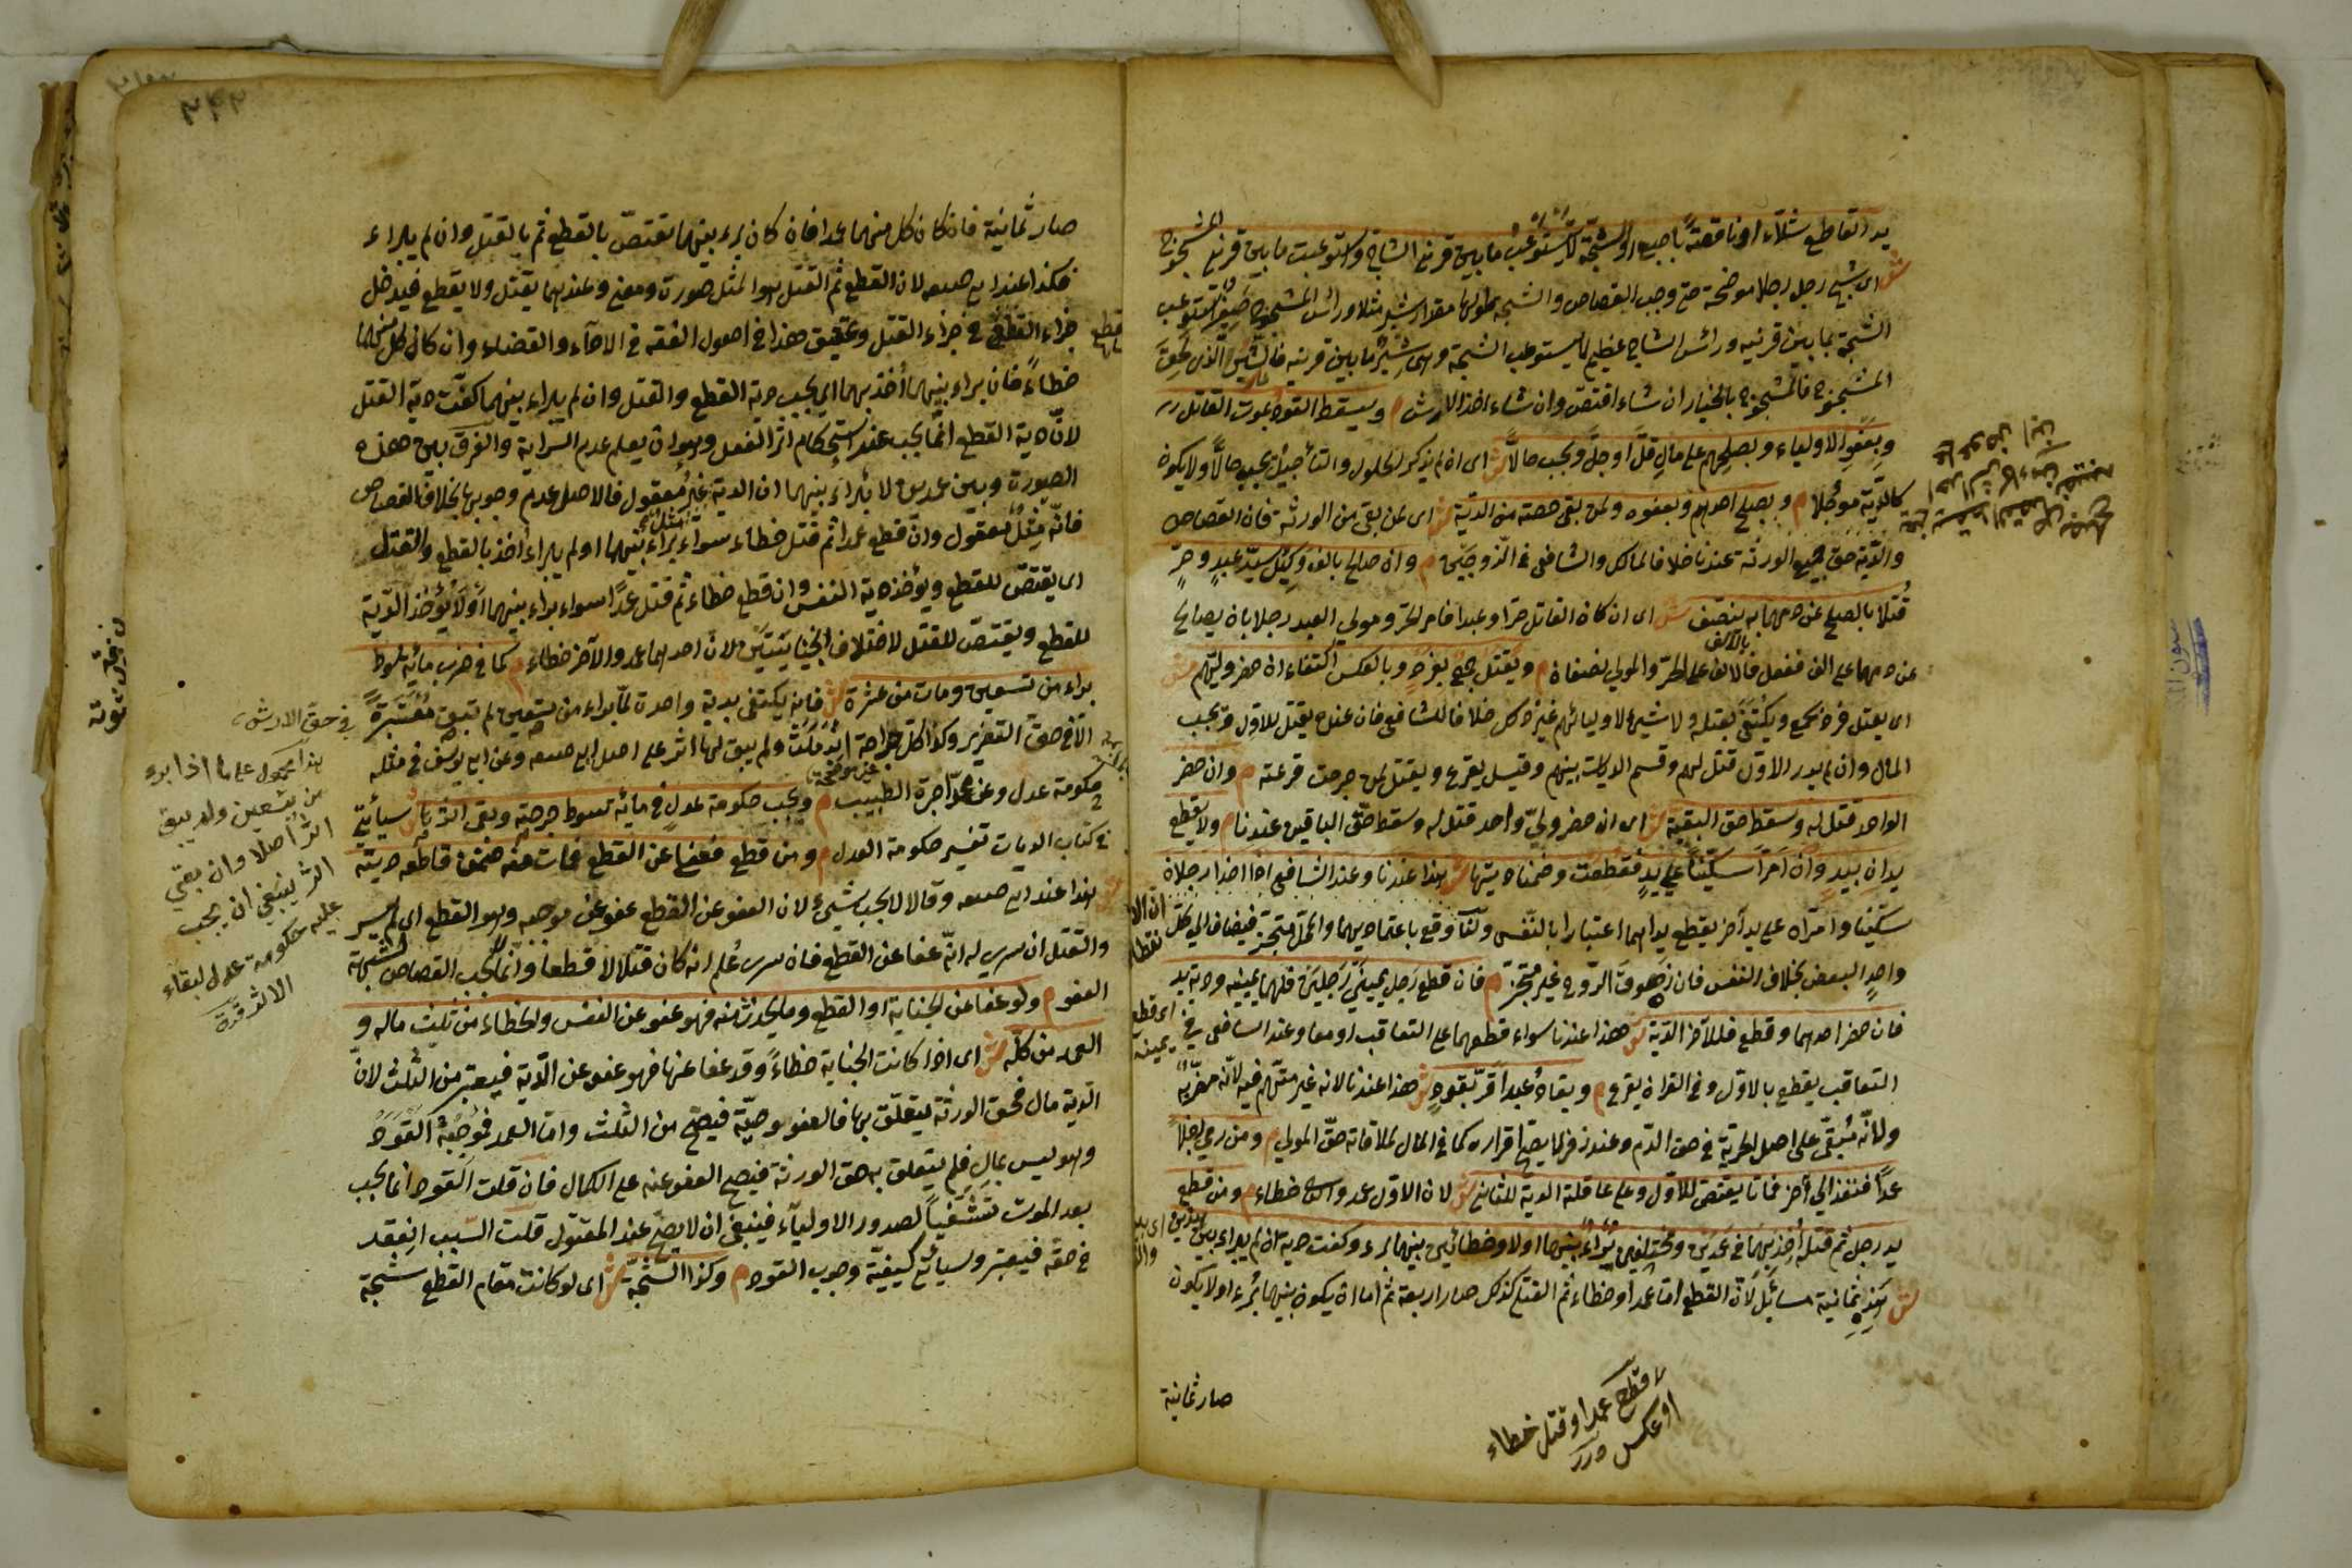 يد القاطع شلّاء او ناقصة باصبع او الشجّة لا تستوعب ما بين قرني الشاج واستوعبت ما بين قرني المشجوج
ش اى شج رجل رجلا موضحة حتى وجب القصاص والشجة طولها مقدار شبر مثلا ورائس المشجوج صغير تستوعب
الشجة ما بين قرنيه ورائس الشاج عظيم لا يستوعب الشجة وهى شبر ما بين قرنيه فالشين الذى لحق
المشجوج فالمشجوج بالخيار ان شاء اقتصّ وان شاء اخذ الارش م ويسقط القود بموت القاتل
وبعفو الاولياء وبصلحهم على مال قلّ او جلّ ويجب حالًّا ش اى ان لم يذكر الحلول والتأجيل يجب حالًّا ولا يكون
كالدية مؤجلا م وبصلح احدهم وبعفوه ولمن بقى حصته من الدّية ش اى لمن بقى من الورثة فان القصاص
والدّية حق جميع الورثة عندنا خلافا لمالك والشافعى فى الزوجين م وان صالح بالف وكيل سيّد عبدٍ وحرٍّ
قتلا بالصلح عن دمهما به ينصّف ش اى ان كان القاتل حرّا وعبدا فامر الحرّ ومولي العبد رجلا بان يصالح
عن دمهما على الف ففعل فالالف على الحرّ والمولي نصفان م ويقتل جمع بفردٍ وبالعكس اكتفاء ان حضر وليّهم ش
اى يقتل فرد بجمع ويكتفى بقتله ولا شئ لاوليائهم غير ذلك خلافا للشافعى فان عنده يقتل للاول ويجب
المال وان لم يدر الاول قتل لهم وقسم الديات بينهم وقيل يقرع ويقتل لمن خرجت قرعته م وان حضر
الواحد قتل له وسقط حق البقية ش اى ان حضر وليّ واحد قتل له وسقط حقّ الباقين عندنا م ولا يقطع
يدان بيد وان امرّا سكّينا على يدٍ فقطعت وضمنا ديتها ش هذا عندنا وعند الشافعى اذا اخذا رجلان
سكّينا وامرّاه على يد آخر يقطع يداهما اعتبارا بالنّفس ولنا وقع باعتماديهما والمحلّ متجزّ فيضاف الى كلّ
واحدٍ البعض بخلاف النفس فان زهوق الرّوح غير متجزّ م فان قطع رجل يمينى رجلين فلهما يمينه ودية يد
فان حضر احدهما وقطع فللآخر الدّية ش هذا عندنا سواء قطعهما على التعاقب او معا وعند الشافعى فى
التعاقب يقطع بالاوّل وفى القران يقرع م ويقاد عبد اقرّ بقود ش هذا عندنا لانه غير متّهم فيه لانّه مضرّ به
ولانّه مبقّى على اصل الحرّية فى حق الدّم وعند زفر لا يصحّ اقراره كما فى المال لملاقاته حقّ المولي م ومن رمى رجلا
عمدًا فنفذ الي آخر فماتا يقتصّ للاول وعلى عاقلته الدية للثانى ش لان الاوّل عمد والثانى خطاء م ومن قطع
يد رجل ثم قتله أخذ بهما فى عمدين ومختلفين برأ بينهما اولا وخطائين بينهما برء وكفت دية ان لم يبراء بين
ش هذه ثمانية مسائل لانّ القطع امّا عمدا او خطاء ثم القتل كذلك صار اربعة ثم اما ان يكون بينهما برء او لا يكون
صار ثمانية
لا قطع عمدا وقتل خطاء
او عكس درر
صار ثمانية فان كان كل منهما عمدا فان كان برء بينهما يقتصّ بالقطع ثم بالقتل وان لم يبراء
فكذا عند ابى حنيفه لان القطع ثم القتل هو المثل صورت ومعنى وعندهما يقتل ولا يقطع فيدخل
جزاء القطع فى جزاء القتل وتحقيق هذا فى اصول الفقه فى الاداء والقضاء وان كان كل منهما
خطاءً فان براء بينهما أخذ بهما اى يجب دية القطع والقتل وان لم يبراء بينهما كفت دية القتل
لانّ دية القطع انّما يجب عند استحكام اثر الفعل وهو ان يعلم عدم السراية والفرق بين هذه
الصورت وبين عمدين لا براء بينهما ان الدية غير معقول فالاصل عدم وجوبها بخلاف القصاص
فانّه مثل معقول وان قطع عمدا ثم قتل خطاء سواء براء بينهما او لم يبراء أخذ بالقطع والقتل
اى يقتصّ للقطع ويؤخذ دية النفس وان قطع خطاء ثم قتل عمدًا سواء براء بينهما أو لا يؤخذ الدّية
للقطع ويقتصّ للقتل لاختلاف الجنايتين لان احدهما عمد والآخر خطاء م كما فى ضرب مائة سوط
براء من تسعين ومات من عشرة ش فانه يكتفى بدية واحدة لمّا براء من تسعين لم تبق معتبرة
الّا فى حق التعزير وكذا كل جراحة اندملت ولم يبق لها اثر على اصل ابى حنيفه وعن ابى يوسف فى مثله
حكومة عدل وعن محمد اجرة الطبيب م ويجب حكومة عدل فى مائة سوط جرحته وبقى اثرها ش سيأتى
فى كتاب الديات تفسير حكومة العدل م ومن قطع فعفا عن القطع فمات منه ضمن قاطعه ديته
ش هذا عند ابى حنيفه وقالا لا يجب شئ لان العفو عن القطع عفو عن موجبه وهو القطع ان لم يسر
والقتل ان سرى له انّه عفا عن القطع فاذا سرى عُلم انه كان قتلا لا قطعا وانّما لا يجب القصاص لشبهة
العفو م ولو عفا عن الجناية او القطع وما يحدث منه فهو عفو عن النفس والخطاء من ثلث ماله و
العمد من كلّه ش اى اذا كانت الجناية خطاءً وقد عفا عنها فهو عفو عن الدّية فيعتبر من الثلث لانّ
الدّية مال فحق الورثة يتعلّق بها فالعفو وصيّة فيصحّ من الثلث وامّا العمد فموجبه القود
وهو ليس بمالٍ فلم يتعلق به حق الورثة فيصح العفو عنه على الكمال فان قلت القود انما يجب
بعد الموت تشفّيا لصدور الاولياء فينبغى ان لا يصحّ عند المقتول قلت السّبب انعقد
فى حقّه فيعتبر وسيأتى كيفيّة وجوب القود م وكذا الشجّة ش اى لو كانت مقام القطع شجة
فى حقّ الارش
هذا محمول على ما اذا برء
من تسعين ولم يبق
اثر اصلا وان بقي
اثر ينبغى ان يجب
عليه حكومة عدل لبقاء
الاثر